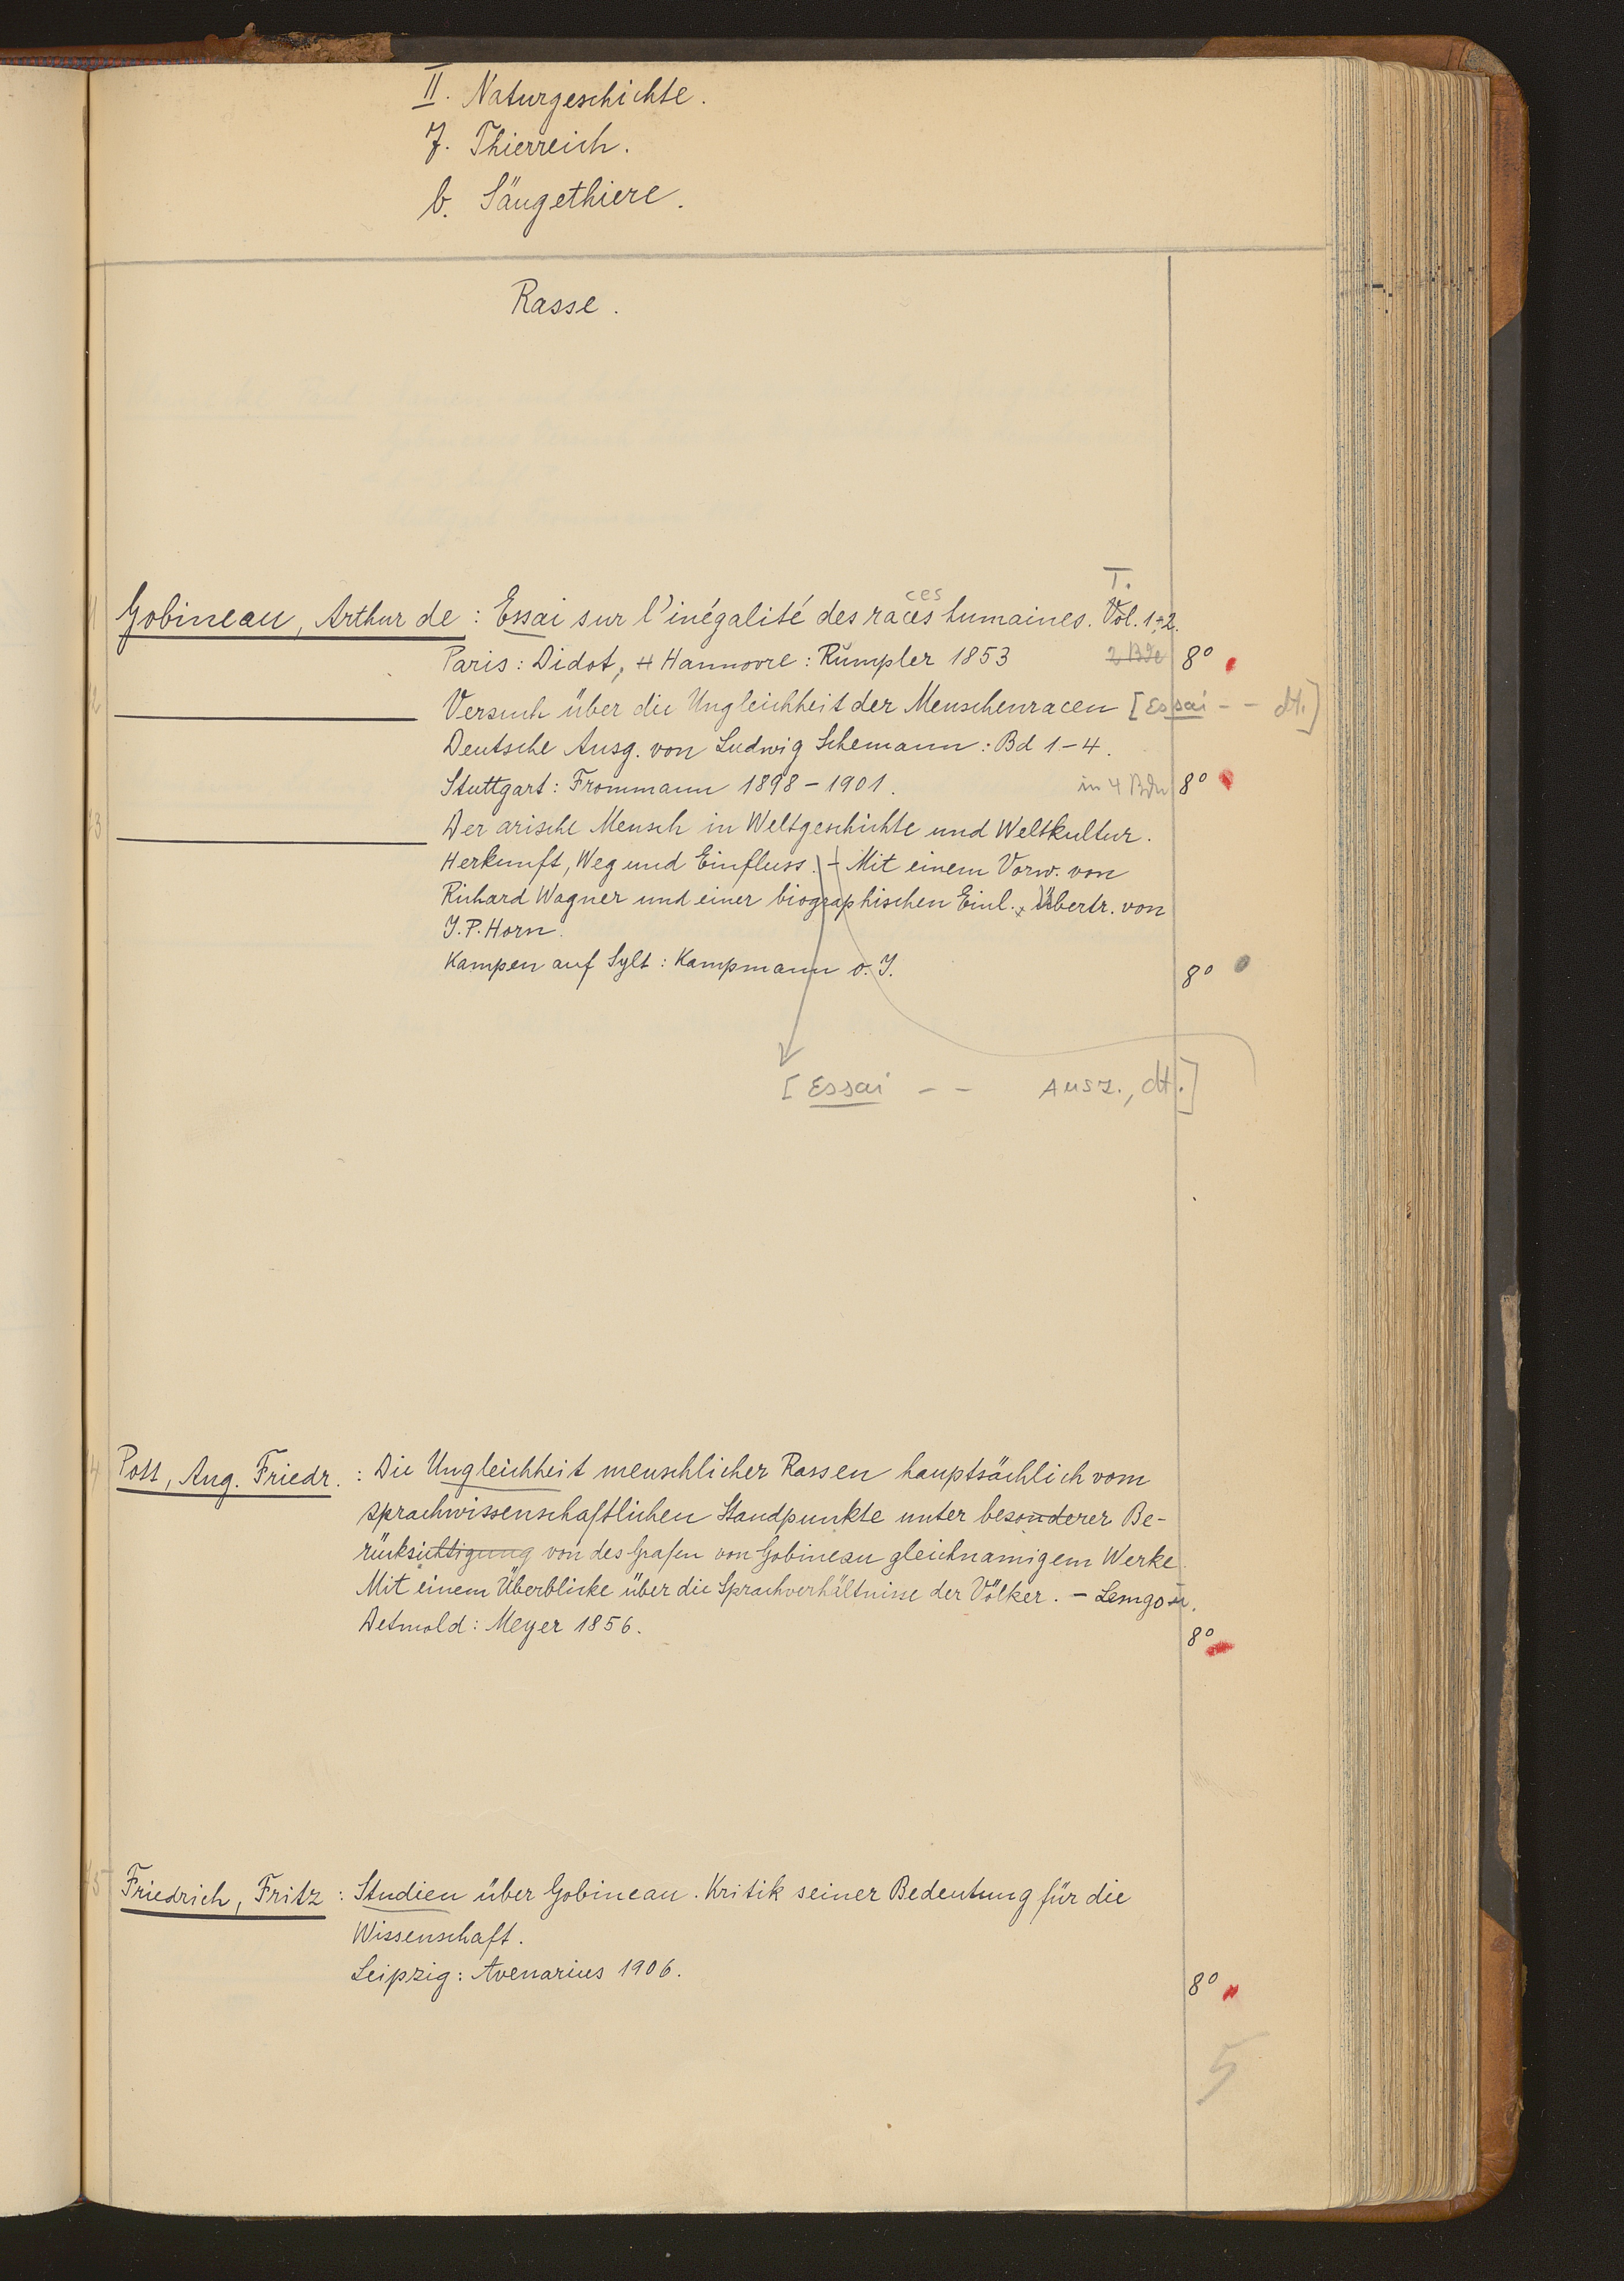 II. Naturgeschichte.
7. Thierreich.
b. Säugethiere.
Rasse.
ces
T.
1 Gobineau, Arthur de : Essai sur l'inégalité des races humaines. Vol. 1+2.
Paris : Didot, Hannovre : Rumpler 1853 2 Bde 8°
2 Versuch über die Ungleichheit der Menschenracen [Essai - - dt.]
Deutsche Ausg. von Ludwig Schemann : Bd 1-4.
Stuttgart : Frommann 1898-1901. in 4 Bdn 8°
3 Der arische Mensch in Weltgeschichte und Weltkultur.
Herkunft, Weg und Einfluss. - Mit einem Vorw. von
Richard Wagner und einer biographischen Einl. Übertr. von
J. P. Horn.
Kampen auf Sylt : Kampmann o. J. 8°
[Essai - - Ausz., dt.]
4 Pott, Aug. Friedr. : Die Ungleichheit menschlicher Rassen hauptsächlich vom
sprachwissenschaftlichen Standpunkte unter besonderer Be-
rücksichtigung von des Grafen von Gobineau gleichnamigem Werke.
Mit einem Überblicke über die Sprachverhältnisse der Völker. - Lemgo u.
Detmold : Meyer 1856. 8°
5 Friedrich, Fritz : Studien über Gobineau. Kritik seiner Bedeutung für die
Wissenschaft.
Leipzig : Avenarius 1906. 8°
5